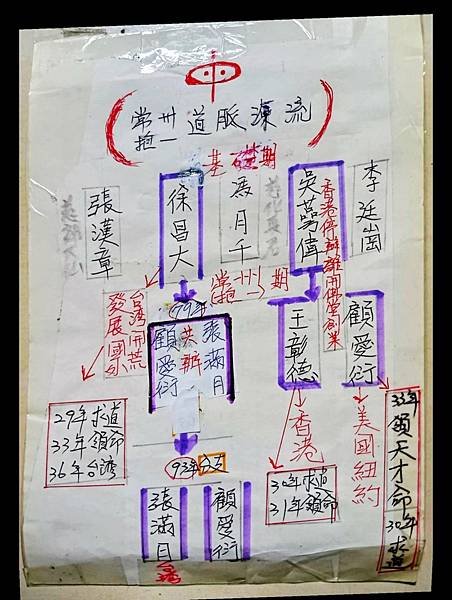 中
常州 道脈源流
抱一
基礎期
李廷崗
吳蕚偉
馮月千
徐昌大
張漢章
香港停辦離開佛堂創業
常州
抱一
期
台灣開荒
發展國外
79年
張滿月
洪辦
顧愛衍
王彰德
顧愛衍
29年求道
33年領命
36年台灣
93年分立
張滿月
台灣
顧愛衍
香港
30年求道
31年領命
美國紐約
33年領天才命30年求道